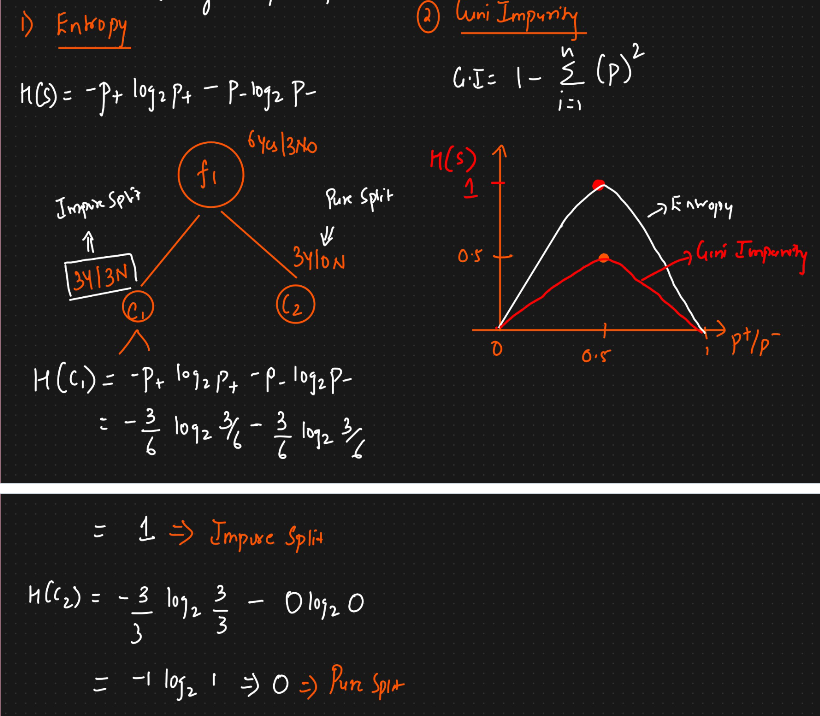 1) Entropy
H(S) = -P+ log2 P+ - P- log2 P-
6Yes/3No
f1
Impure Split
Pure Split
3Y/3N
3Y/0N
C1
C2
H(C1) = -P+ log2 P+ - P- log2 P-
= -3/6 log2 3/6 - 3/6 log2 3/6
② Gini Impurity
G.I = 1 - n∑i=1 (P)²
H(S)
1
Entropy
0.5
Gini Impurity
0
0.5
1
P+/P-
= 1 ⇒ Impure Split
H(C2) = -3/3 log2 3/3 - 0 log2 0
= -1 log2 1 ⇒ 0 ⇒ Pure Split